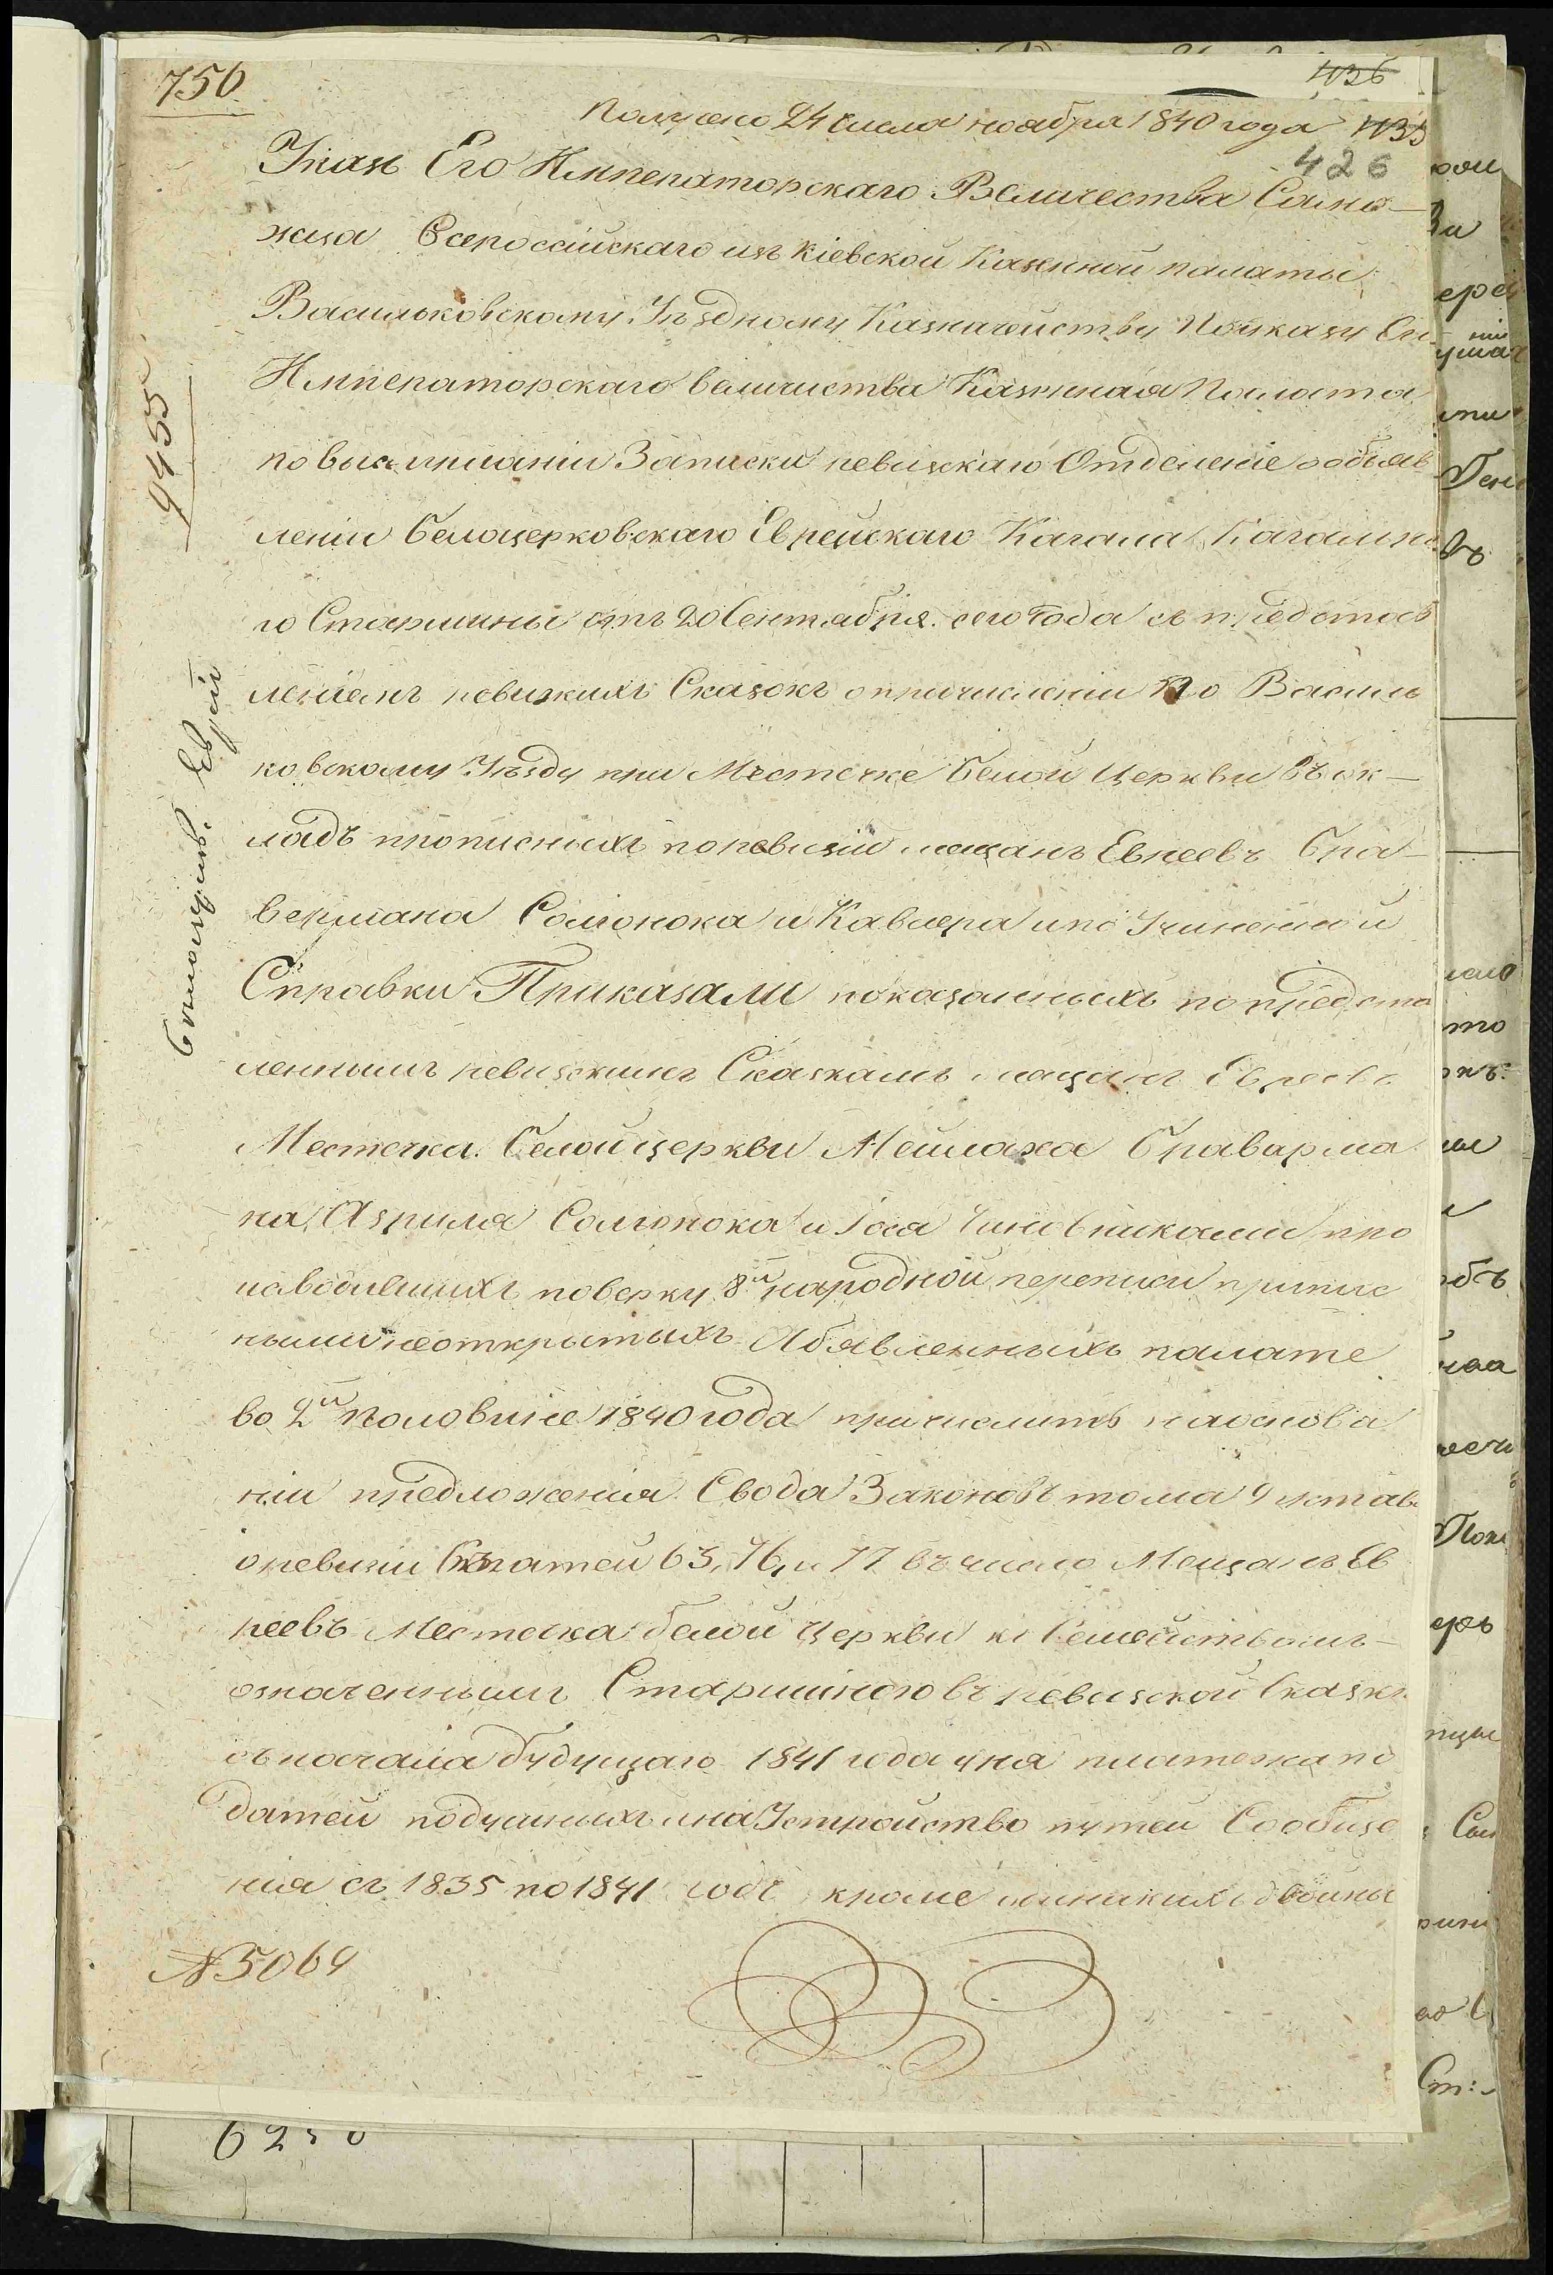 750
436
Получено 24 числа ноября 1840 года 435
426
Указъ Его Императорскаго Величества Само-
жца Всероссійскаго изъ Кіевской Казенной палаты
Васильковскому Уѣздному Казначейству По указу Его
Императорскаго величества Казенная Палата
по выслушаніи Записки ревизскаго Отделеніе объяв
леніи Белоцерковскаго Еврейскаго Кагала Кагальна
го Старшины отъ 20 Сентября сего года съ представ
леніемъ ревизкихъ Сказокъ о причисленіи по Василь
ковскому Уѣзду при Местечке Белой Церкви въ ок-
ладъ прописныхъ по ревизіи мещанъ Евреевъ Бра-
вермана Солонока и Кавлера и по Учиненной
Справки Приказали показанныхъ по предста
леннымъ ревизскимъ Сказкамъ мещанъ Евреевъ
Местечка Белой церкви Мейлаха Браварма
на, Азриля Солонока и Іося Чиновниками про
изводившихъ поверку 8й народной переписи припис
ными неоткрытыхъ Абявленныхъ палате
во 2й половине 1840 года причислить на основа
ніи предложенія Свода Законовъ тома 9 устав
о ревизіи Статей 63, 76, и 77 въ число Мещанъ Ев
реевъ Местечка белой Церкви къ Семействамъ-
означеннымъ Старшиною въ ревизской Сказки
съ начала будущаго 1841 года для платежа по
датей подушныхъ и на Устройство путей Сообще
нія съ 1835 по 1841 годъ кроме двойны
№ 5064
9455
Белоцерков. Еврей
6250